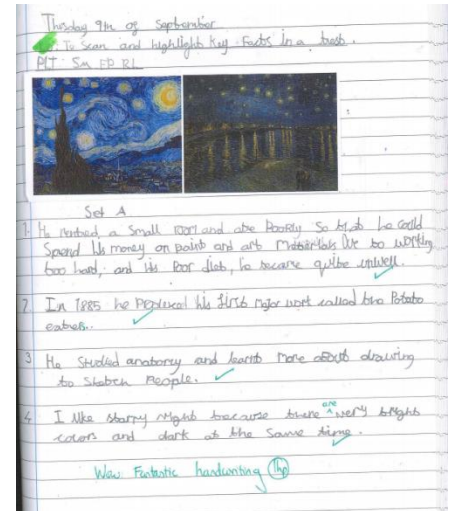 Thusday 9th of September
To Scan and highlight key facts in a text.
PLT SM EP RL
Set A
1. He rented a Small room and ate Poorly so that he could
Spend his money on paint and art Materials Due to working
too hard, and his Poor diet, he became quite unwell.
2 In 1885 he Produced his first major work called the Potato
eaters.
3 He Studied anatomy and learnt more about drawing
to Sketch People.
4 I like starry night because there are very bright
colours and dark at the Same time.
Wow Fantastic handwriting 1hp